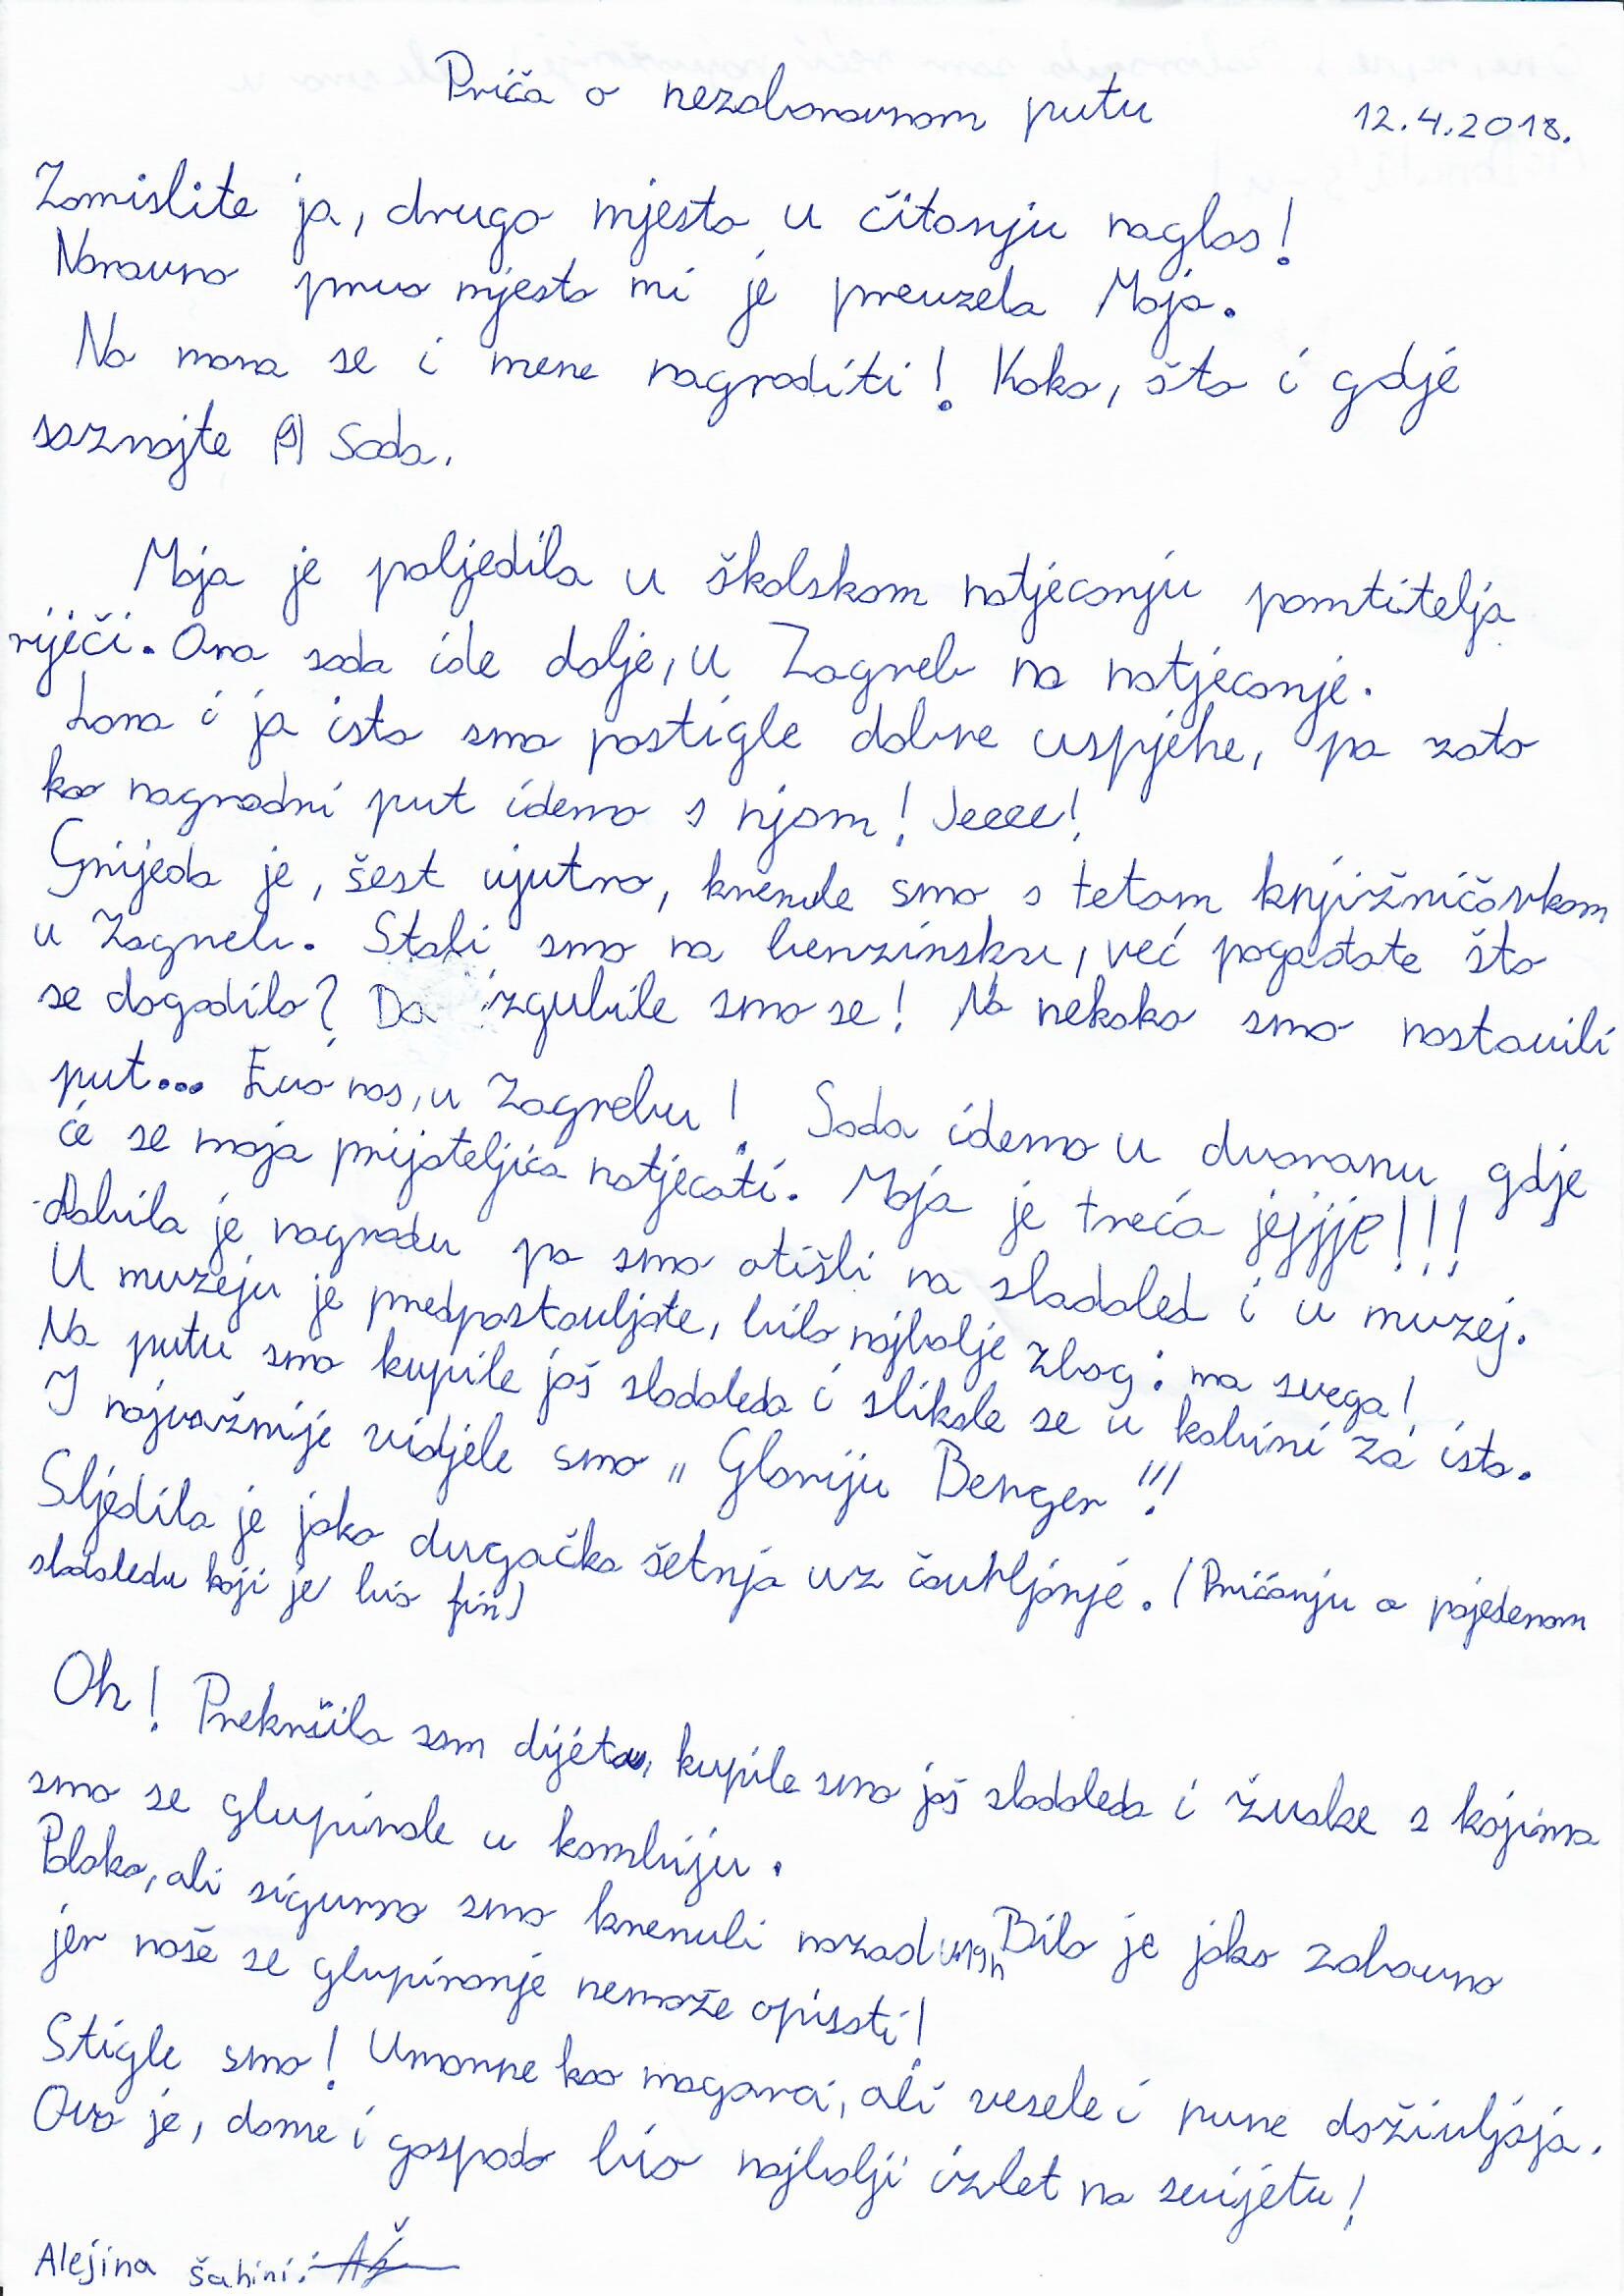 Priča o nezaboravnom putu
12.4.2018.
Zamislite ja, drugo mjesto u čitanju naglas!
Naravno prvo mjesto mi je preuzela Maja.
No mora se i mene nagraditi! Kako, što i gdje
saznajte Sada.
Maja je pobjedila u školskom natjecanju pamtitelja
riječi. Ona sada ide dalje, u Zagreb na natjecanje.
Lana i ja isto smo postigle dobre uspjehe, pa zato
kao nagradni put idemo s njom! Jeeee!
Srijeda je, šest ujutro, krenule smo s tetom knjižničarkom
u Zagreb. Stali smo na benzinsku, već pogađate što
se dogodilo? Da izgubile smo se! No nekako smo nastavili
put... Evo nas, u Zagrebu! Sada idemo u dvoranu gdje
će se moja prijateljica natjecati. Maja je treća jejjje!!!
dobila je nagradu pa smo otišli na sladoled i u muzej.
U muzeju je predpostavljate, bilo najbolje zbog: ma svega!
Na putu smo kupile još sladoleda i slikale se u kabini za isto.
I najvažnije vidjele smo "Gloriju Berger"!!!
Sljedila je jako dugačka šetnja uz čavrljanje. (Pričanju o pojedenom
sladoledu koji je bio fin)
Oh! Prekršila sam dijetu, kupile smo još sladoleda i žvake s kojima
smo se glupirale u kombiju.
Polako, ali sigurno smo krenuli nazad u 19h Bilo je jako zabavno
jer naše se glupiranje nemože opisati!
Stigle smo! Umorne kao magarci, ali vesele i pune doživljaja.
Ovo je, dame i gospodo bio najbolji izlet na svijetu!
Alejina Šahini: AŠ